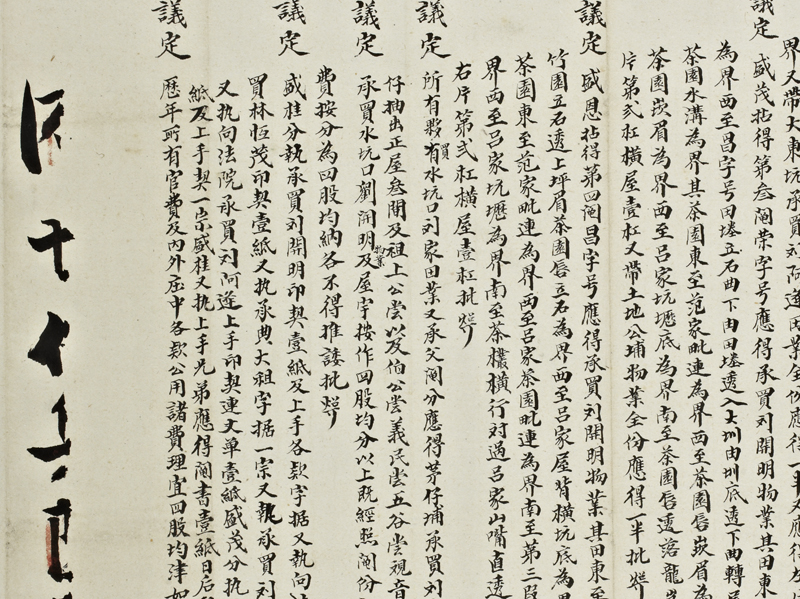 界又帶大東坑承買刘阿逢田業全份應得一半又應得
議定　盛茂拈得第叁阄荣字号應得承買刘開明物業其田東
為界西至昌字号田塍立石曲下由田塍透入大圳由圳底透下曲轉
茶園水溝為界其茶園東至范家毗連為界西至茶園唇崁眉為
茶園崁眉為界西至吕家坑壢底為界南至茶園唇透落龍
片第貳杠橫屋壹杠又帶土地公埔物業全份應得一半批照
議定　盛恩拈得第四阄昌字号應得承買刘開明物業其田東至
竹園立石透上坪眉茶園唇立石為界西至吕家屋背橫坑底為界
茶園東至范家毗連為界西至吕家茶園毗連為界南至第三段
界西至吕家坑壢為界南至茶欉橫行对過吕家山嘴直透
右片第貳杠橫屋壹杠批照
議定　所有夥買有水坑口刘家田業又承父阄分應得茅仔埔承買刘
仔抽出正屋叁間及祖上公嘗以及伯公嘗義民嘗五谷嘗覌音
議定　承買水坑口劉開明物業及屋宇按作四股均分以上既經照阄份
費按分為四股均納各不得推諉批照
議定　盛桂分執承買刘開明印契壹紙及上手各款字据又执向
買林恒茂印契壹紙又执承典大祖字据一宗又執承買刘
又执向法院承買刘阿逢上手印契連丈单壹紙盛茂分执
紙及上手契一宗盛桂又执上手兄弟應得阄書壹紙日后
議定　歷年所有官費及内外庄中各款公用諸費理宜四股均津如